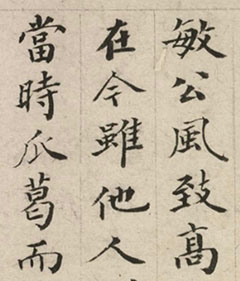 敏公風致高
在今雖他人
當時瓜葛而